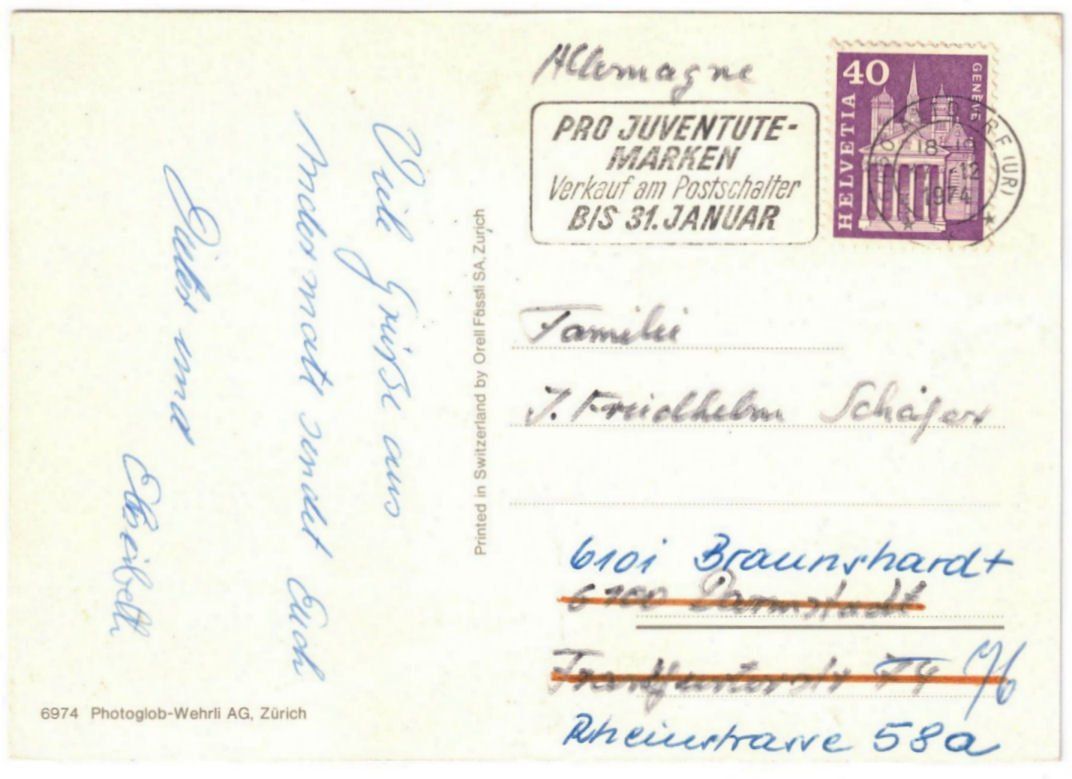 Viele Grüße aus
Andermatt sendet Euch
Dieter und
Elseibeth
6974 Photoglob-Wehrli AG, Zürich
Printed in Switzerland by Orell Füssli SA, Zürich
Allemagne
PRO JUVENTUTE-
MARKEN
Verkauf am Postschalter
BIS 31. JANUAR
40
HELVETIA
GENÈVE
18-19
12
1974
(URI)
Familie
J. Friedhelm Schäfer
6101 Braunshardt
6100 Darmstadt
Frankfurterstr 74
Rheinstrasse 58a